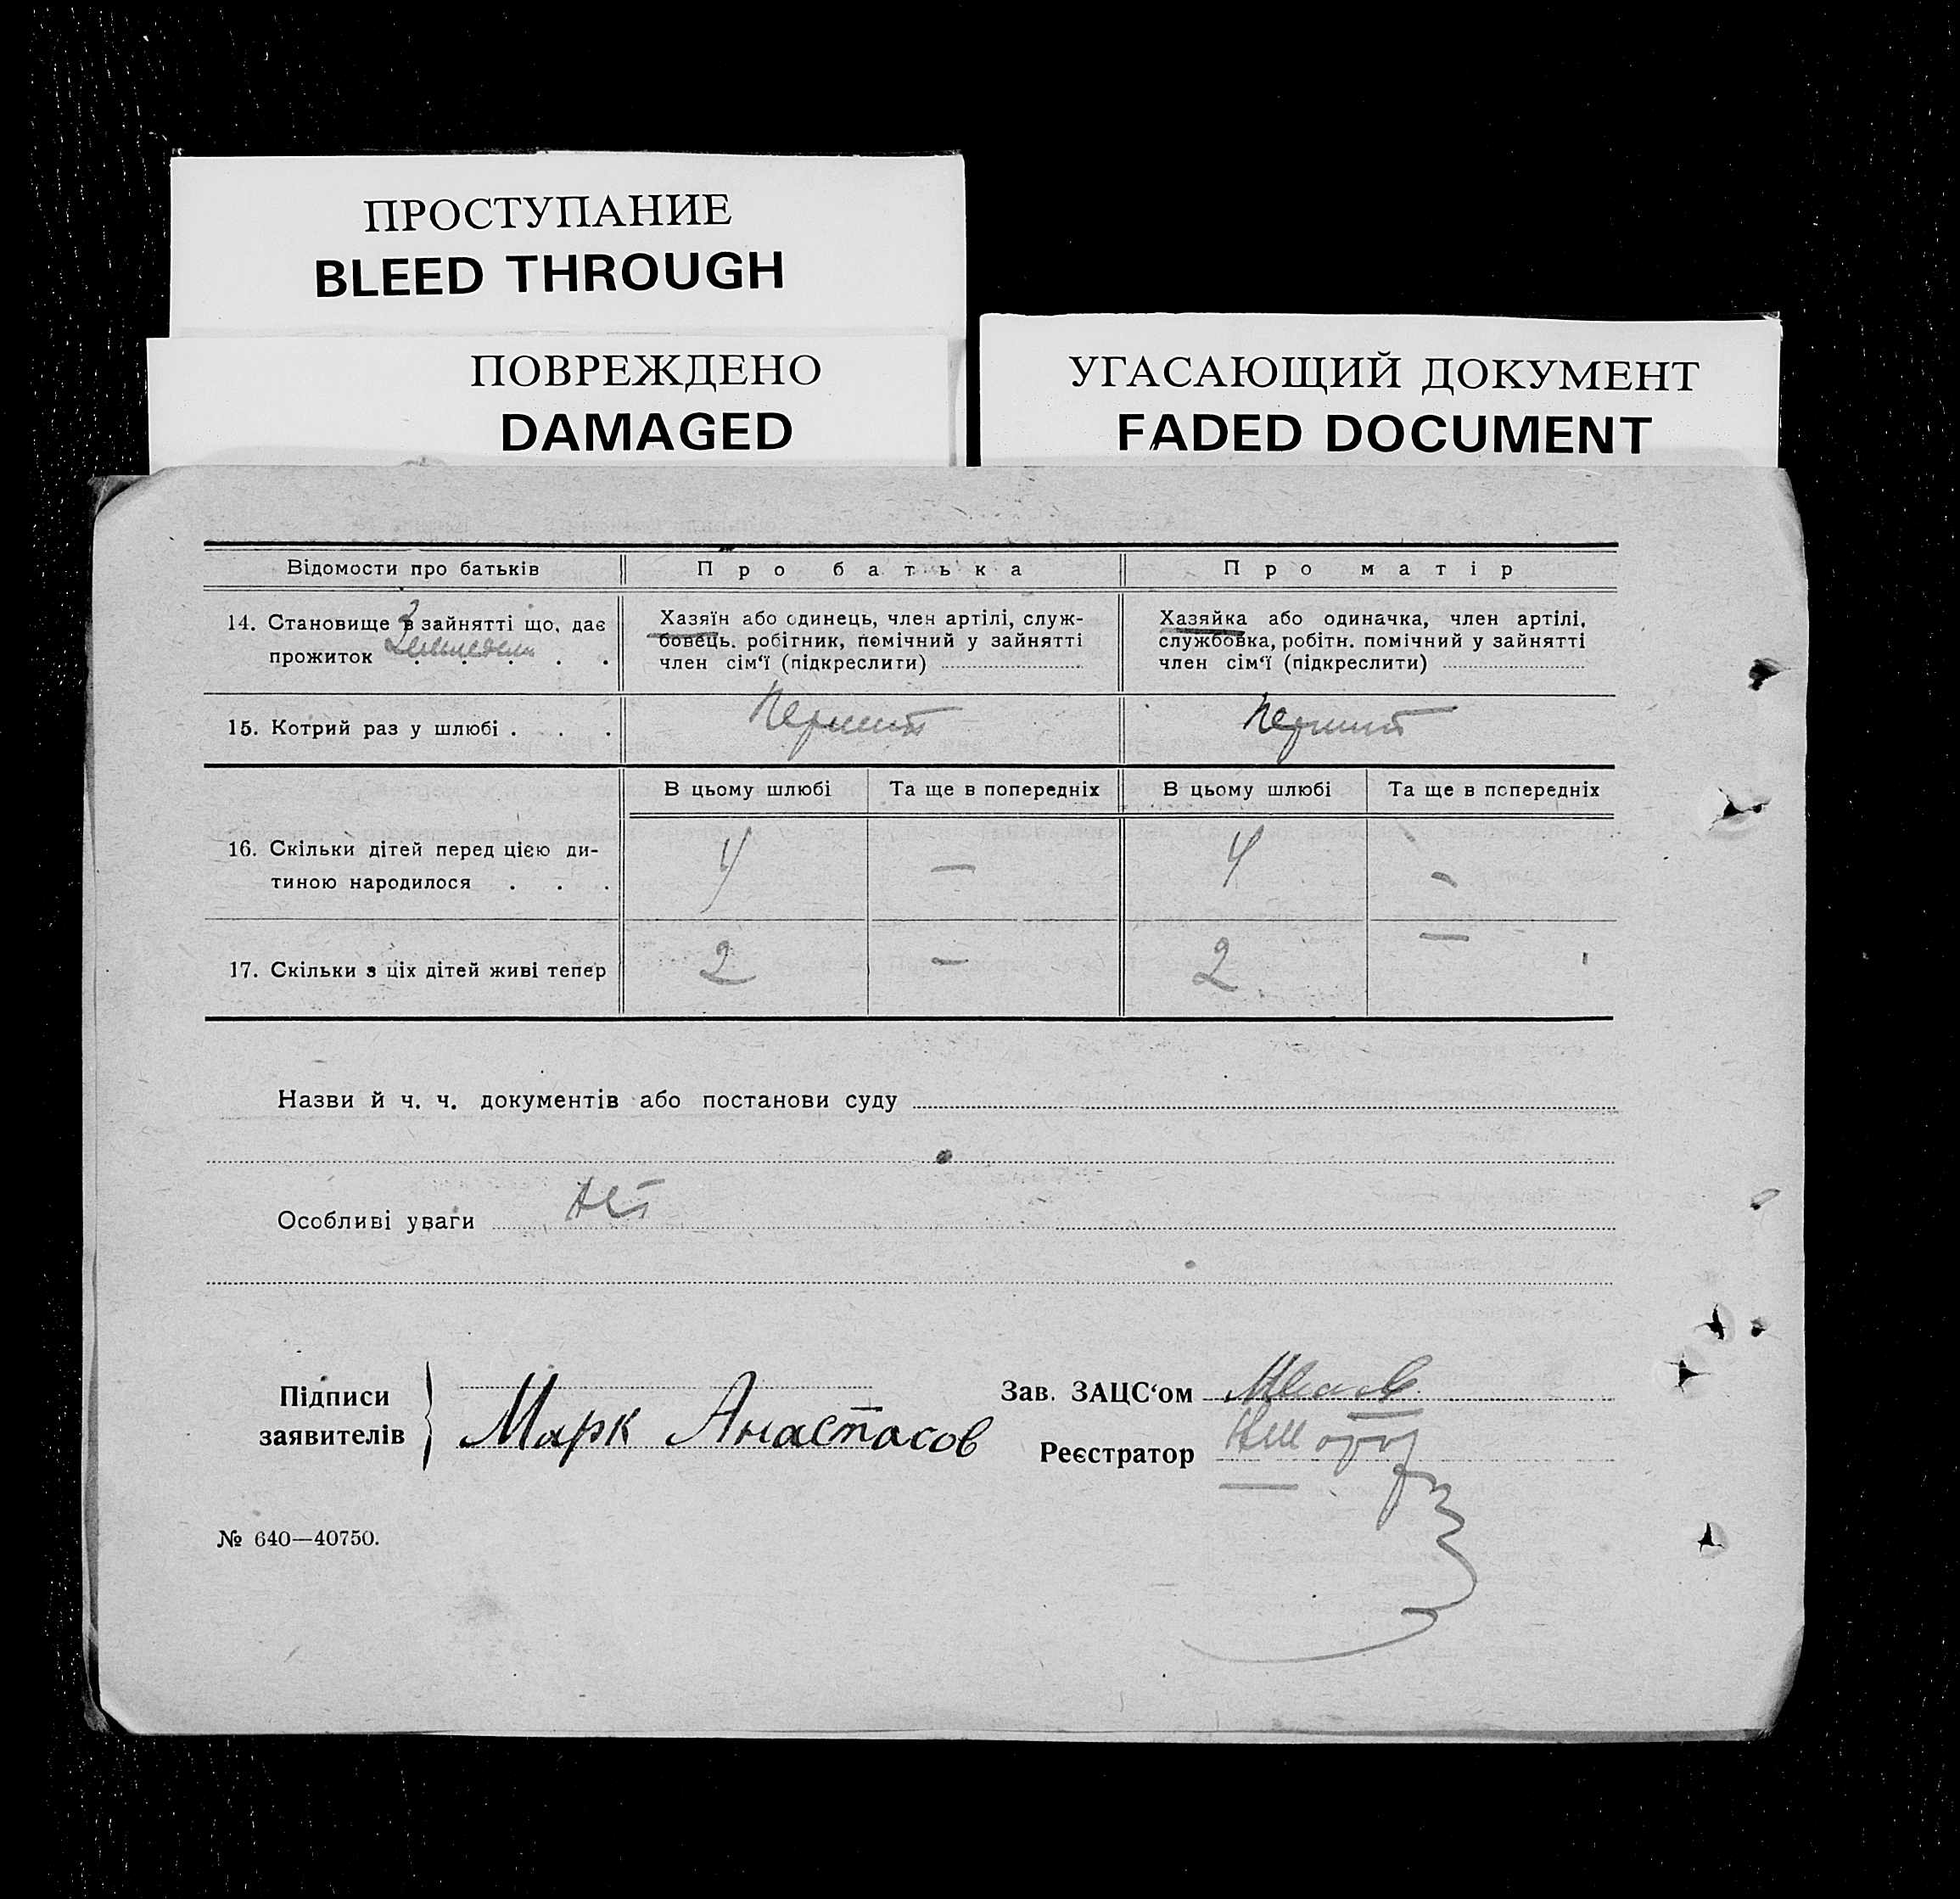 ПРОСТУПАНИЕ
BLEED THROUGH
ПОВРЕЖДЕНО
DAMAGED
УГАСАЮЩИЙ ДОКУМЕНТ
FADED DOCUMENT
Відомости про батьків
Про батька
Про матір
14. Становище в зайнятті що, дає
прожиток . . . . .
Хазяїн або одинець, член артілі, служ-
бовець. робітник, помічний у зайнятті
член сім‘ї (підкреслити)
Хазяйка або одиначка, член артілі,
службовка, робітн. помічний у зайнятті
член сім‘ї (підкреслити)
15. Котрий раз у шлюбі . . .
Перший
Перший
В цьому шлюбі
Та ще в попередніх
В цьому шлюбі
Та ще в попередніх
16. Скільки дітей перед цією ди-
тиною народилося . . .
4
—
4
—
17. Скільки з ціх дітей живі тепер
2
—
2
—
Назви й ч. ч. документів або постанови суду
Особливі уваги
Нет
Підписи
заявителів
Марк Анастасов
Зав. ЗАЦС‘ом
Реєстратор
№ 640—40750.